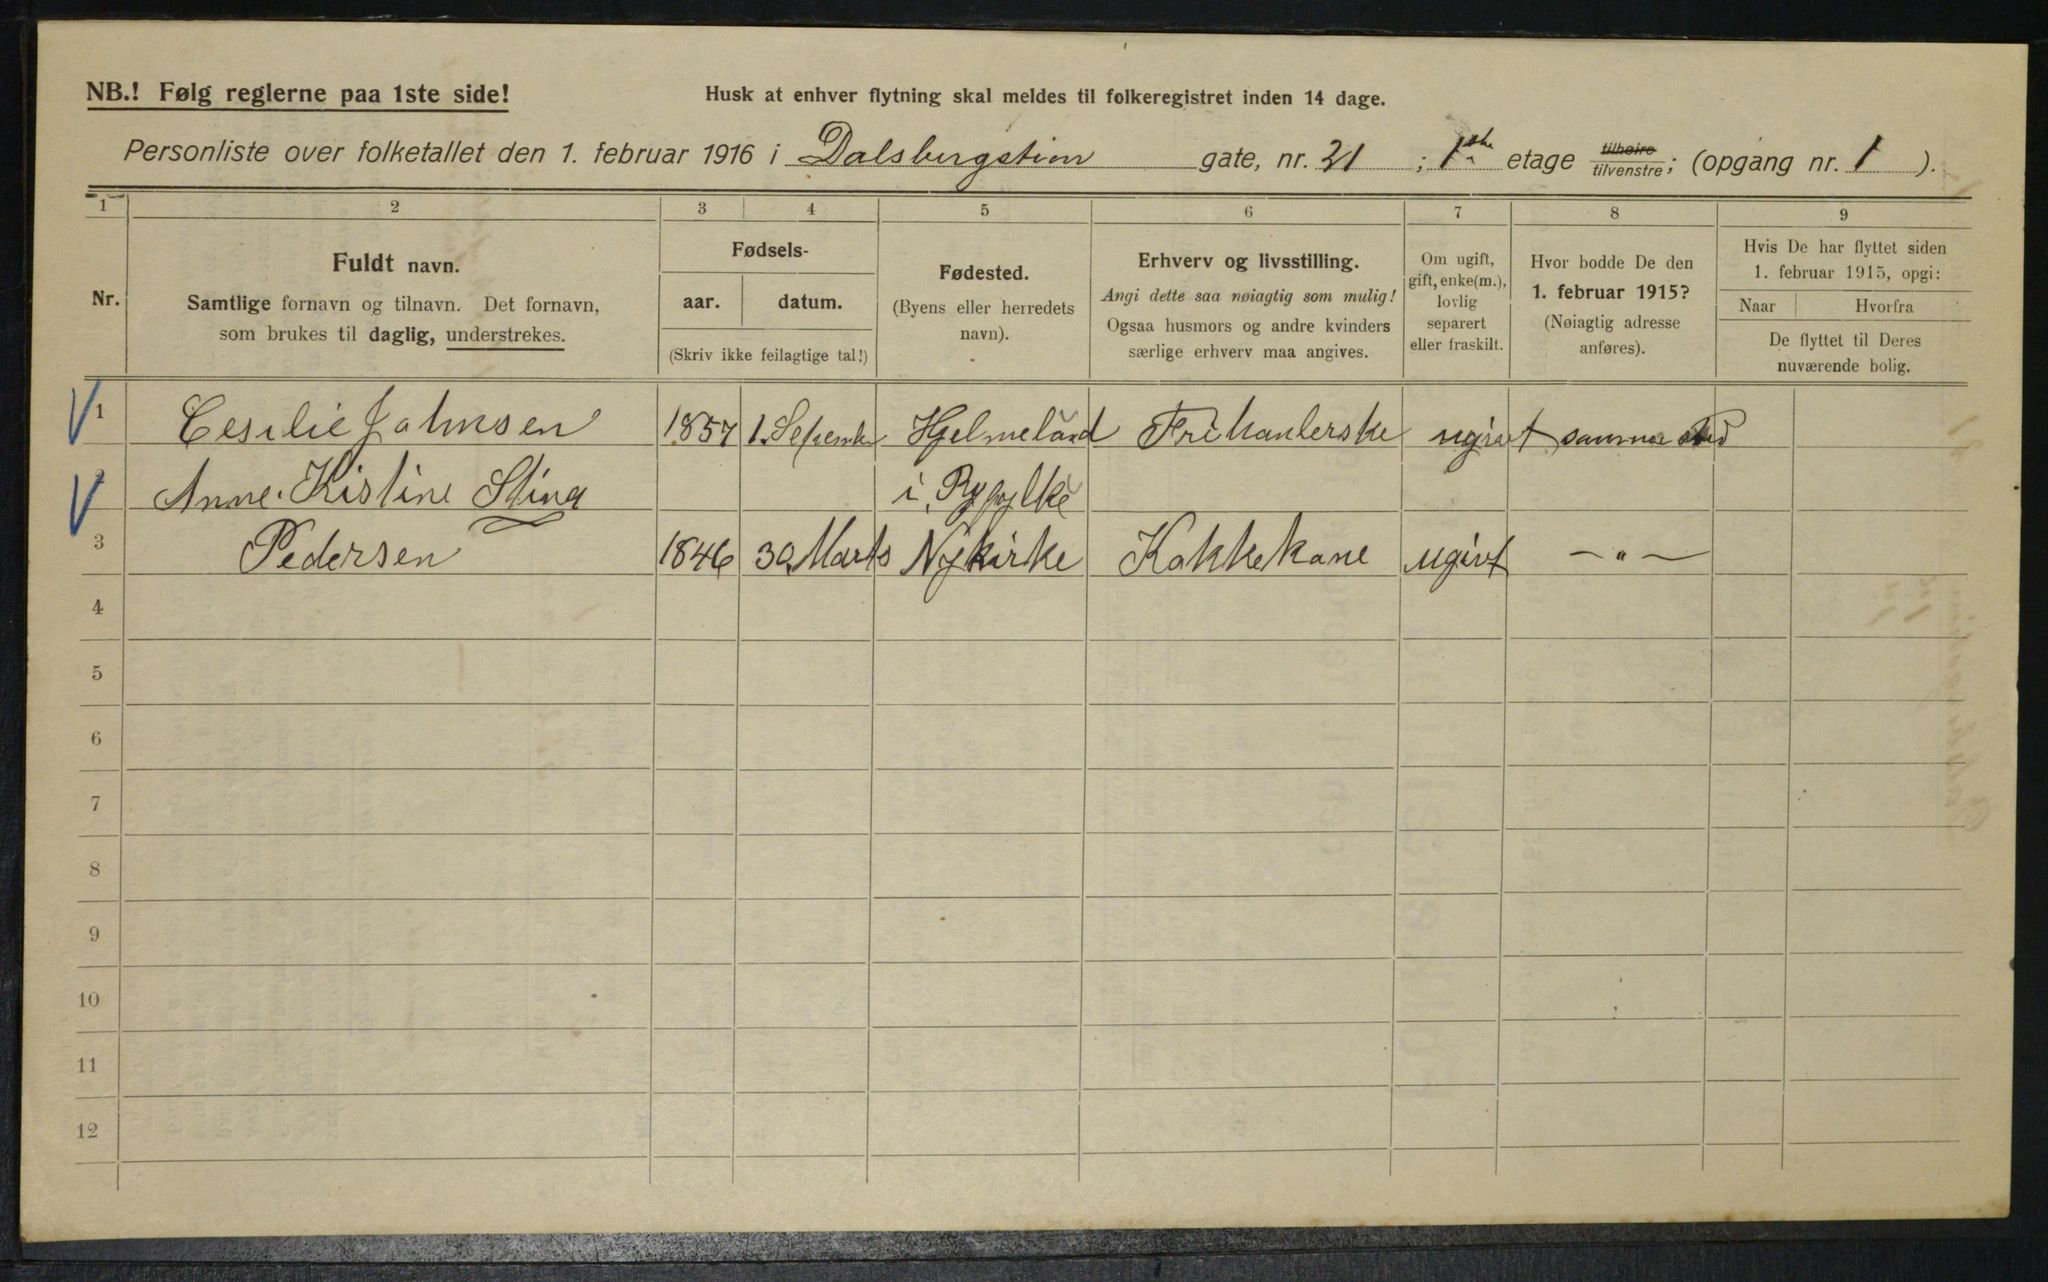 NB.! Følg reglerne paa 1ste side!
Husk at enhver flytning skal meldes til folkeregistret inden 14 dage.
Personliste over folketallet den 1. februar 1916 i Dalsbergstien gate, nr. 31 ; 1ste etage tilhøire/tilvenstre; (opgang nr. 1 ).
1 2 3 4 5 6 7 8 9
Nr.
Fuldt navn.
Samtlige fornavn og tilnavn. Det fornavn,
som brukes til daglig, understrekes.
Fødsels-
aar. datum.
(Skriv ikke feilagtige tal!)
Fødested.
(Byens eller herredets
navn).
Erhverv og livsstilling.
Angi dette saa nøiagtig som mulig!
Ogsaa husmors og andre kvinders
særlige erhverv maa angives.
Om ugift,
gift, enke(m.),
lovlig
separert
eller fraskilt.
Hvor bodde De den
1. februar 1915?
(Nøiagtig adresse
anføres).
Hvis De har flyttet siden
1. februar 1915, opgi:
Naar Hvorfra
De flyttet til Deres
nuværende bolig.
1 Cesilie Johnsen 1857 1. September Hjelmeland Frihanlerske ugivt samme sted
2 Anne Kistine Stina i Ryfylke
3 Pedersen 1846 30 Marts Nykirke Kokkekone ugivt — " —
4
5
6
7
8
9
10
11
12